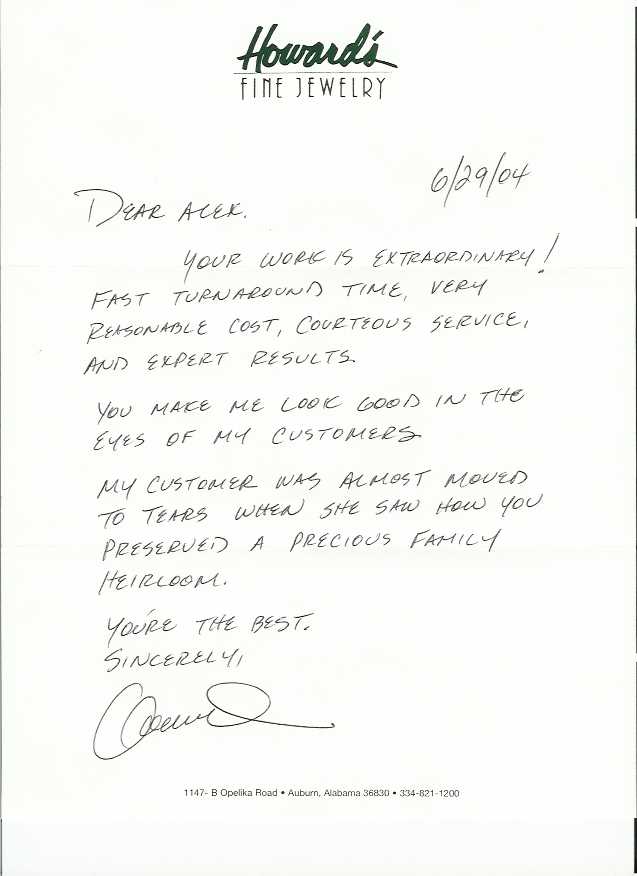 Howard's
FINE JEWELRY
6/29/04
DEAR ALEX.
YOUR WORK IS EXTRAORDINARY!
FAST TURNAROUND TIME, VERY
REASONABLE COST, COURTEOUS SERVICE,
AND EXPERT RESULTS.
YOU MAKE ME LOOK GOOD IN THE
EYES OF MY CUSTOMERS
MY CUSTOMER WAS ALMOST MOVED
TO TEARS WHEN SHE SAW HOW YOU
PRESERVED A PRECIOUS FAMILY
HEIRLOOM.
YOU'RE THE BEST.
SINCERELY,
1147- B Opelika Road • Auburn, Alabama 36830 • 334-821-1200